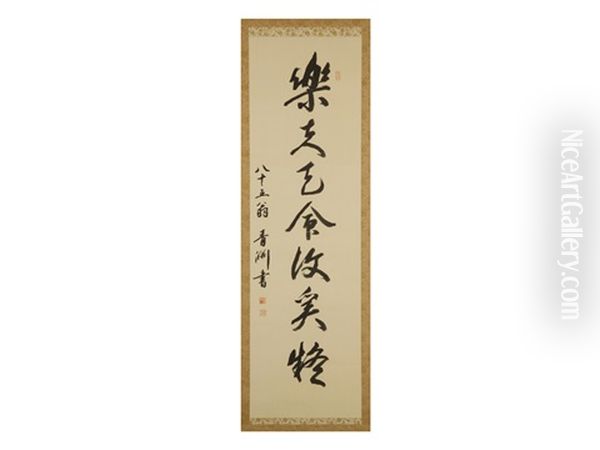 樂夫天命復奚疑
八十五翁 青淵書
NiceArtGallery.com